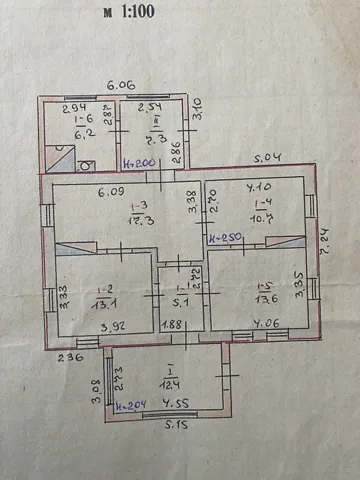 м 1:100
6.06
2.94
2.87
1-6
6,2
2.54
7.3
2.86
3,10
К=2.00
5.04
6.09
1-3
17,3
3,38
2,70
4.10
1-4
10.7
7.24
К=2.50
3,33
1-2
13,1
3.92
2.72
5.1
1.88
1-5
13,6
3,35
4.06
2.36
3,08
2,73
I
12,4
К=2.04
4.55
5.15